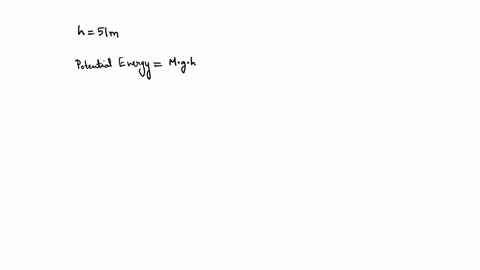 h = 51m
Potential Energy = M·g·h